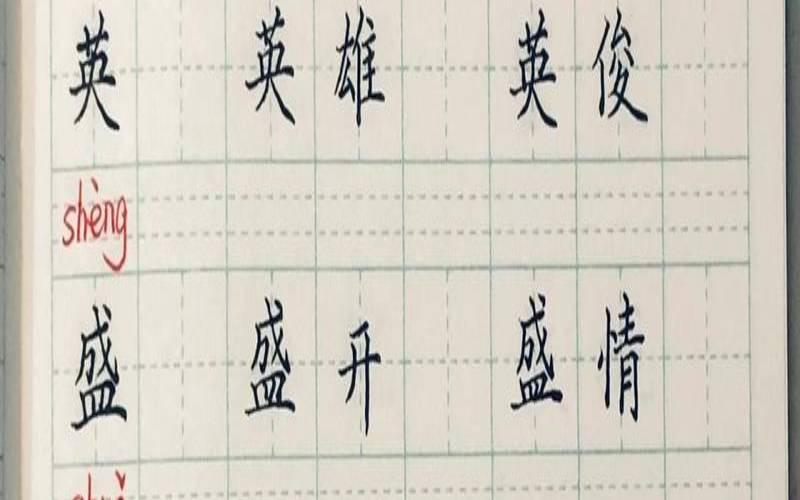 英 英雄 英俊
shèng
盛 盛开 盛情